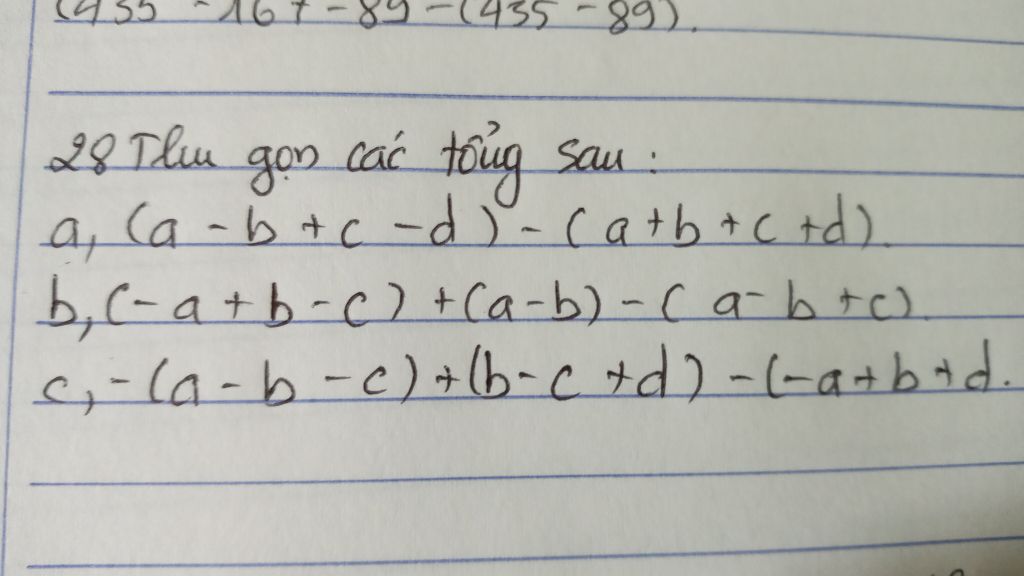 (435 - 167 - 89 - (435 - 89).
28 Thu gọn các tổng sau :
a, (a - b + c - d) - (a + b + c + d).
b, (- a + b - c) + (a - b) - (a - b + c).
c, - (a - b - c) + (b - c + d) - (- a + b + d.